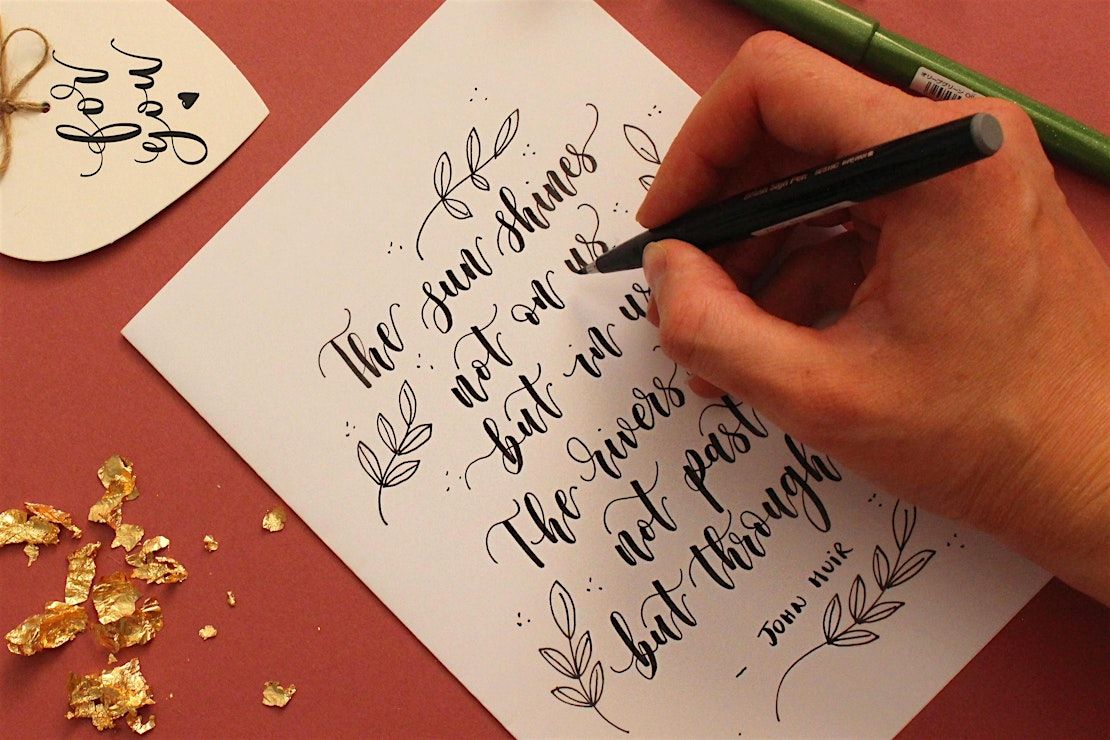 for
you
The sun shines
not on us
but in us
The rivers
not past
but through
- JOHN MUIR
オリーブグリーン Oli